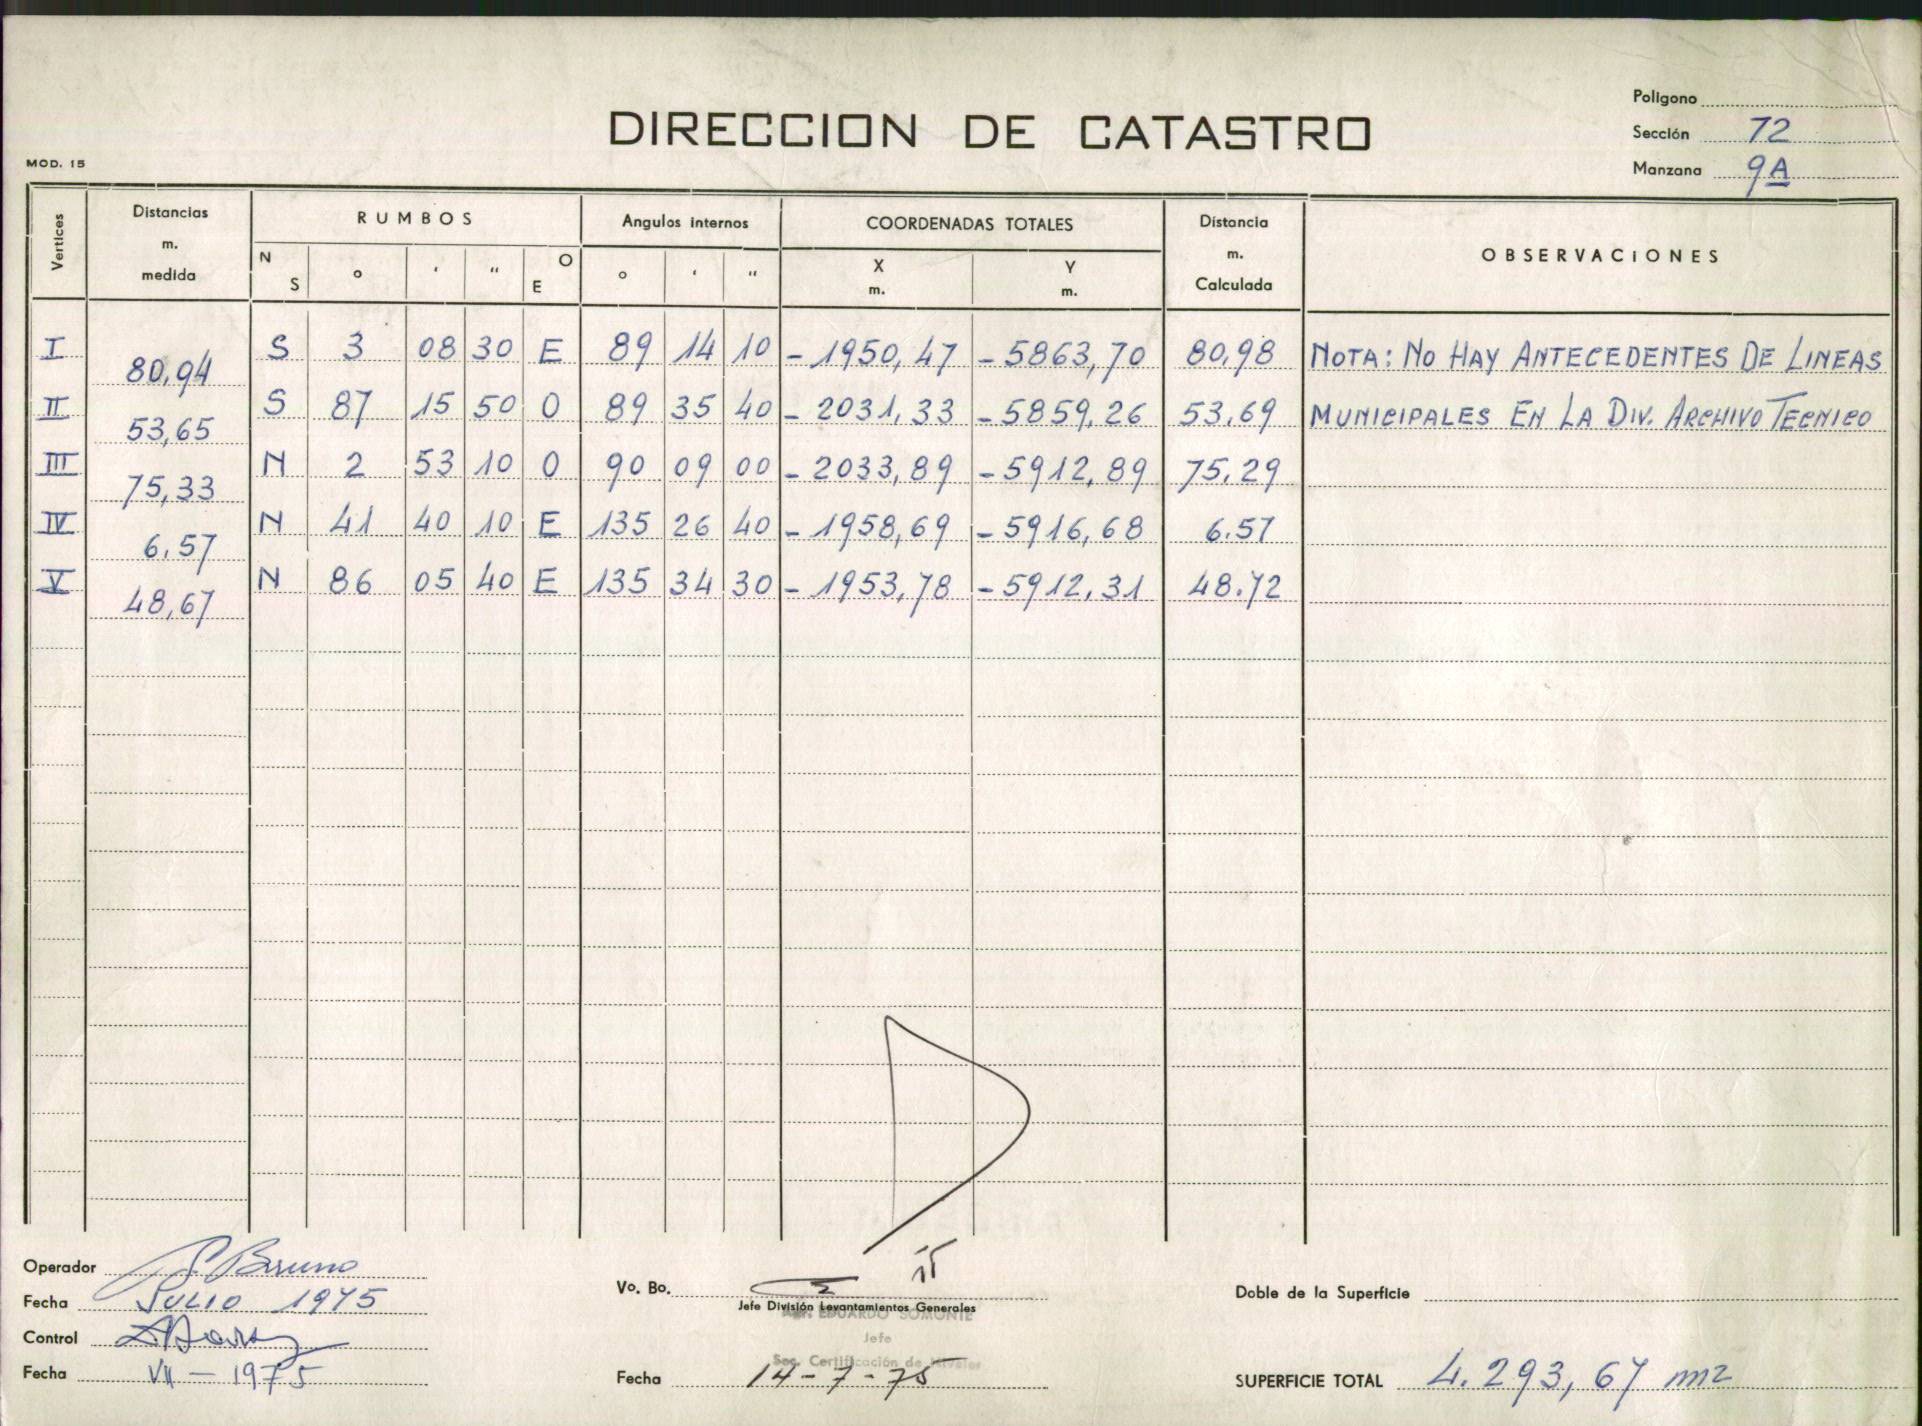 DIRECCION DE CATASTRO
Poligono
Sección 72
Manzana 9A
MOD. 15
Vertices Distancias m. medida RUMBOS Angulos internos COORDENADAS TOTALES Distancia m. Calculada OBSERVACIONES
N S ° ' " O E ° ' " X m. Y m.
I S 3 08 30 E 89 14 10 -1950,47 -5863,70 80,98 NOTA: NO HAY ANTECEDENTES DE LINEAS
80,94
II S 87 15 50 O 89 35 40 -2031,33 -5859,26 53,69 MUNICIPALES EN LA DIV. ARCHIVO TECNICO
53,65
III N 2 53 10 O 90 09 00 -2033,89 -5912,89 75,29
75,33
IV N 41 40 10 E 135 26 40 -1958,69 -5916,68 6.57
6,57
V N 86 05 40 E 135 34 30 -1953,78 -5912,31 48.72
48,67
Operador Bruno
Fecha JULIO 1975
Control
Fecha VII - 1975
Vo. Bo.
Jefe División Levantamientos Generales
EDUARDO SOMONTE
Jefe
Sec. Certificación de Niveles
Fecha 14-7-75
Doble de la Superficie
SUPERFICIE TOTAL 4.293,67 m2